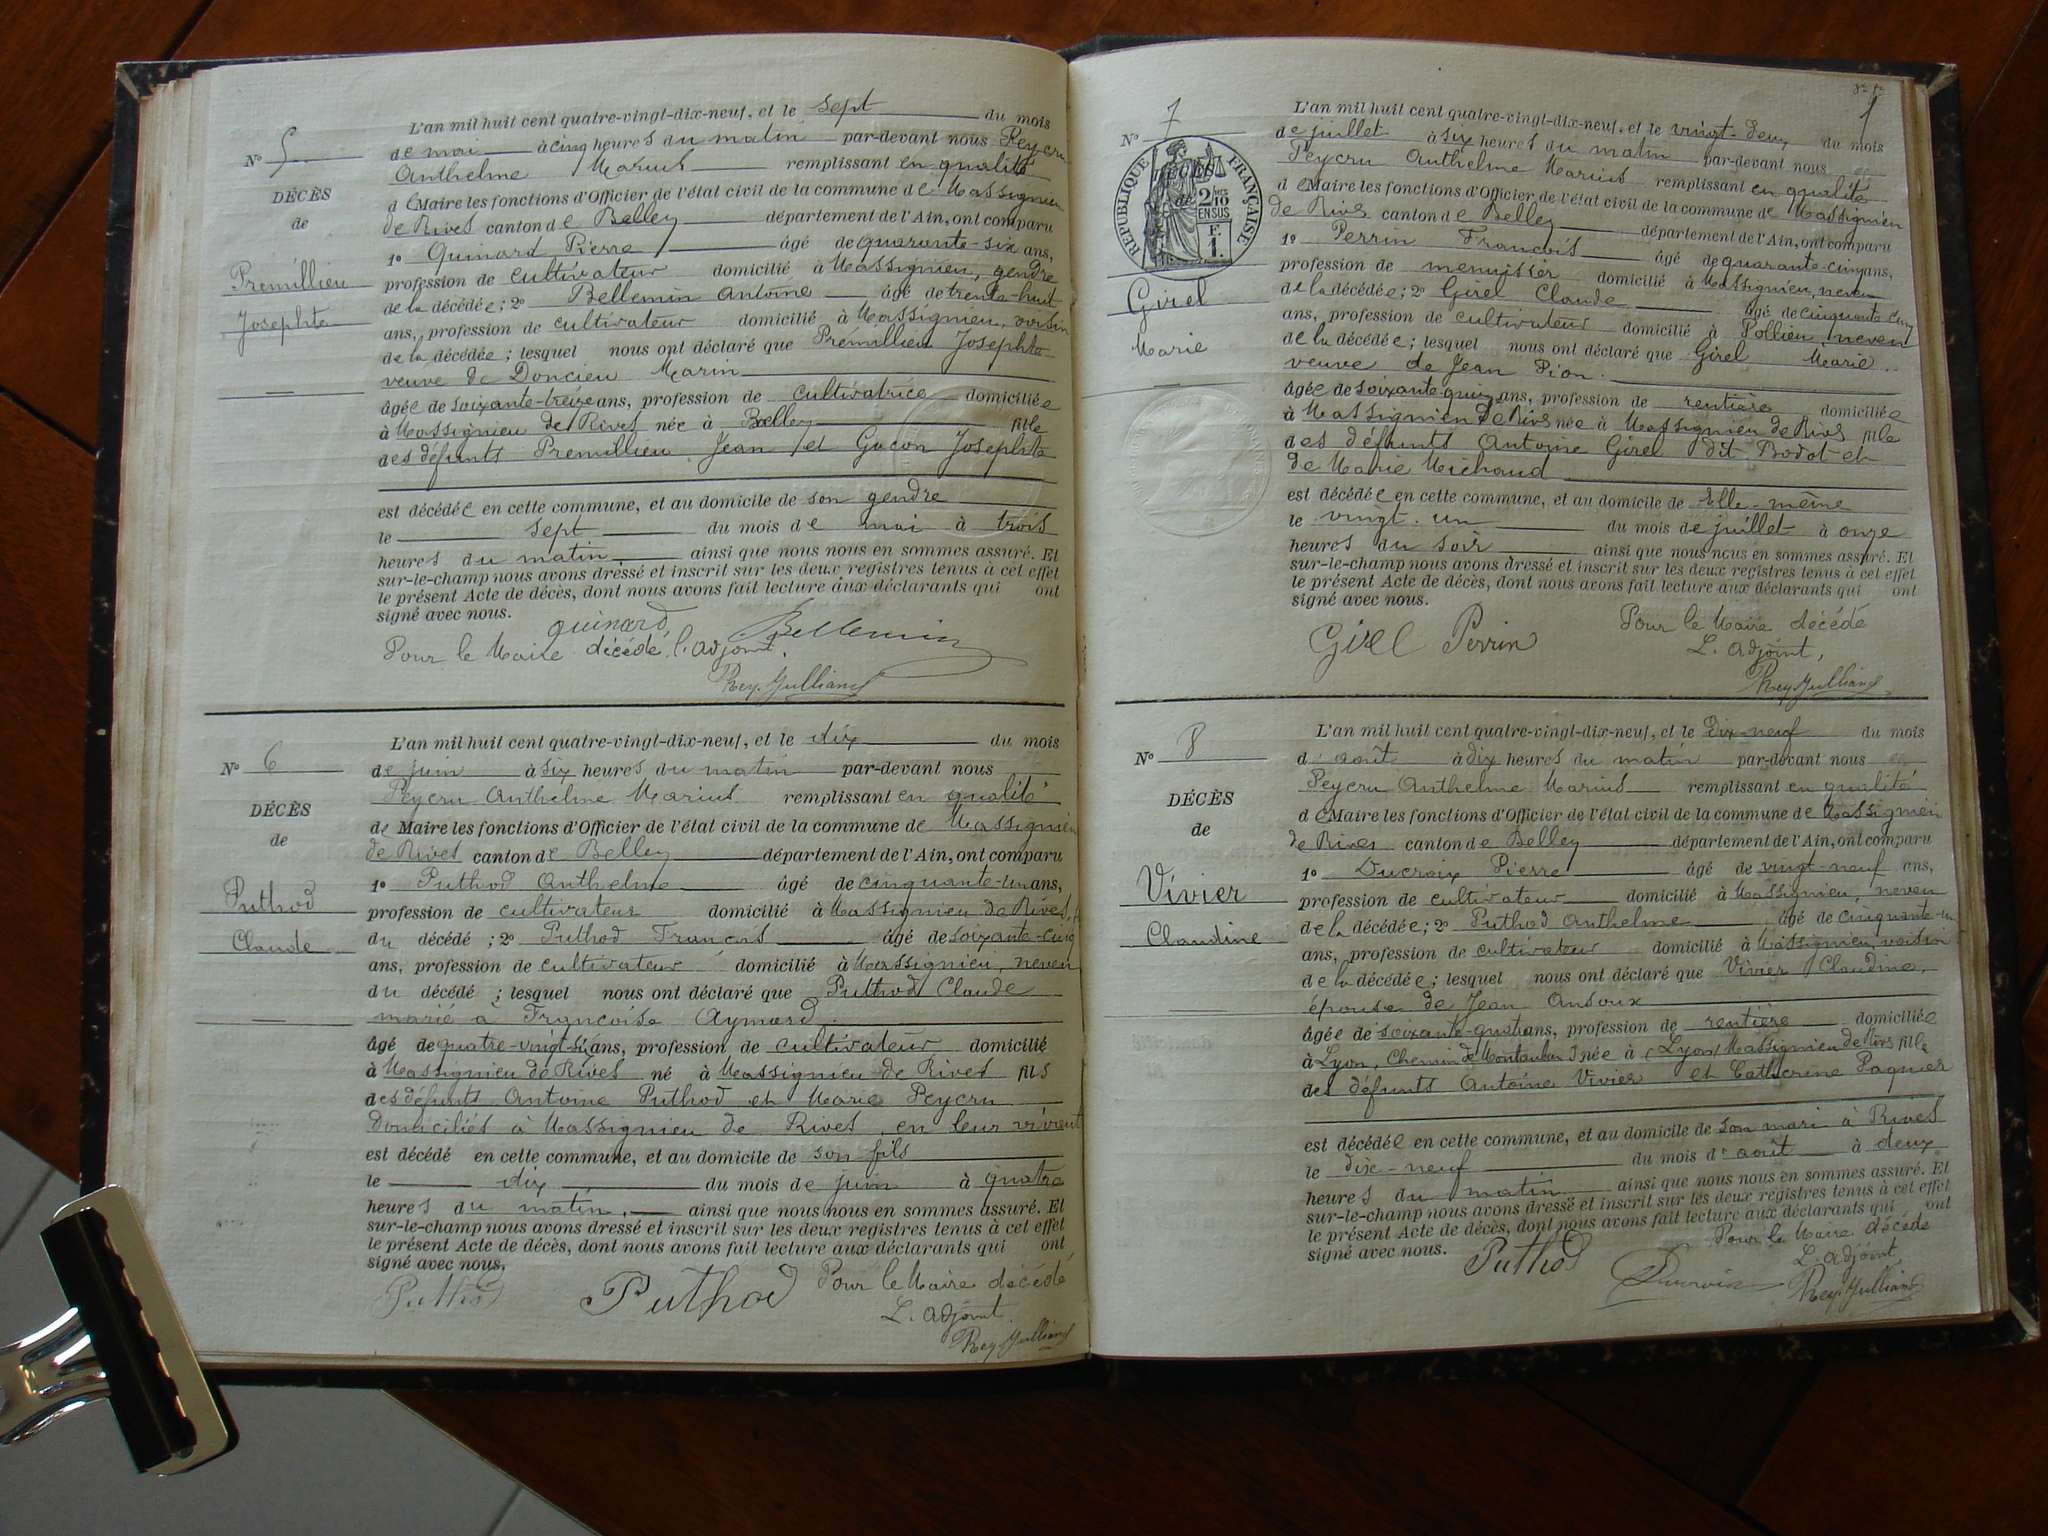 L'an mil huit cent quatre-vingt-dix-neuf, et le sept du mois
N° 5
de mai à cinq heures du matin par-devant nous Peycru
Anthelme Marius remplissant en qualité
DÉCÈS
de
de Maire les fonctions d'Officier de l'état civil de la commune de Massignieu
de Rives canton de Belley département de l'Ain, ont comparu
1° Quinard Pierre âgé de quarante-six ans,
Prémillieu
Josephte
profession de cultivateur domicilié à Massignieu, gendre
de la décédée; 2° Bellemin Antoine âgé de trente-huit
ans, profession de cultivateur domicilié à Massignieu, voisin
de la décédée; lesquel nous ont déclaré que Prémillieu Josephte
veuve de Doncieu Marin
âgée de soixante-treize ans, profession de cultivatrice domiciliée
à Massignieu de Rives née à Belley fille
des défunts Premillieu Jean et Gacon Josephte
est décédée en cette commune, et au domicile de son gendre
le sept du mois de mai à trois
heures du matin ainsi que nous nous en sommes assuré. Et
sur-le-champ nous avons dressé et inscrit sur les deux registres tenus à cet effet
le présent Acte de décès, dont nous avons fait lecture aux déclarants qui ont
signé avec nous.
quinard Bellemin
Pour le Maire décédé, l'adjoint.
Rey-Jullian
L'an mil huit cent quatre-vingt-dix-neuf, et le dix du mois
N° 6
de juin à six heures du matin par-devant nous
Peycru Anthelme Marius remplissant en qualité
DÉCÈS
de
de Maire les fonctions d'Officier de l'état civil de la commune de Massignieu
de Rives canton de Belley département de l'Ain, ont comparu
1° Puthod Anthelme âgé de cinquante-un ans,
Puthod
Claude
profession de cultivateur domicilié à Massignieu de Rives,
du décédé; 2° Puthod François âgé de soixante-cinq
ans, profession de cultivateur domicilié à Massignieu, neveu
du décédé; lesquel nous ont déclaré que Puthod Claude
marié à Françoise Aymard
âgé de quatre-vingt-six ans, profession de cultivateur domicilié
à Massignieu de Rives né à Massignieu de Rives fils
des défunts Antoine Puthod et Marie Peycru
domiciliés à Massignieu de Rives, en leur vivant
est décédé en cette commune, et au domicile de son fils
le dix du mois de juin à quatre
heures du matin, ainsi que nous nous en sommes assuré. Et
sur-le-champ nous avons dressé et inscrit sur les deux registres tenus à cet effet
le présent Acte de décès, dont nous avons fait lecture aux déclarants qui ont
signé avec nous.
Puthod Puthod Pour le Maire décédé
L'adjoint
Rey-Jullian
L'an mil huit cent quatre-vingt-dix-neuf, et le vingt-deux du mois
N° 7
de juillet à six heures du matin par-devant nous
Peycru Anthelme Marius remplissant en qualité
RÉPUBLIQUE FRANÇAISE
DÉCÈS
de
2/10 EN SUS
F. 1.
de Maire les fonctions d'Officier de l'état civil de la commune de Massignieu
de Rives canton de Belley département de l'Ain, ont comparu
1° Perrin François âgé de quarante-cinq ans,
Girel
Marie
profession de menuisier domicilié à Massignieu, neveu
de la décédée; 2° Girel Claude âgé de cinquante cinq
ans, profession de cultivateur domicilié à Pollieu, neveu
de la décédée; lesquel nous ont déclaré que Girel Marie
veuve de Jean Pion
âgée de soixante-quinze ans, profession de rentière domiciliée
à Massignieu de Rives née à Massignieu de Rives fille
des défunts Antoine Girel dit Bodot et
de Marie Michaud
est décédée en cette commune, et au domicile de elle-même
le vingt-un du mois de juillet à onze
heures du soir ainsi que nous nous en sommes assuré. Et
sur-le-champ nous avons dressé et inscrit sur les deux registres tenus à cet effet
le présent Acte de décès, dont nous avons fait lecture aux déclarants qui ont
signé avec nous.
Girel Perrin Pour le Maire décédé
L'adjoint,
Rey-Jullian
L'an mil huit cent quatre-vingt-dix-neuf, et le Dix-neuf du mois
N° 8
d'août à dix heures du matin par-devant nous
Peycru Anthelme Marius remplissant en qualité
DÉCÈS
de
de Maire les fonctions d'Officier de l'état civil de la commune de Massignieu
de Rives canton de Belley département de l'Ain, ont comparu
1° Ducroix Pierre âgé de vingt-neuf ans,
Vivier
Claudine
profession de cultivateur domicilié à Massignieu, neveu
de la décédée; 2° Puthod Anthelme âgé de cinquante-un
ans, profession de cultivateur domicilié à Massignieu, voisin
de la décédée; lesquel nous ont déclaré que Vivier Claudine,
épouse de Jean Ansoux
âgée de soixante-quatre ans, profession de rentière domiciliée
à Lyon, Chemin de Montauban 7 née à (Lyon) Massignieu de Rives fille
des défunts Antoine Vivier et Catherine Paquier
est décédée en cette commune, et au domicile de son mari à Rives
le dix-neuf du mois d'août à deux
heures du matin ainsi que nous nous en sommes assuré. Et
sur-le-champ nous avons dressé et inscrit sur les deux registres tenus à cet effet
le présent Acte de décès, dont nous avons fait lecture aux déclarants qui ont
signé avec nous. Pour le Maire décédé
Puthod Ducroix L'adjoint
Rey-Jullian